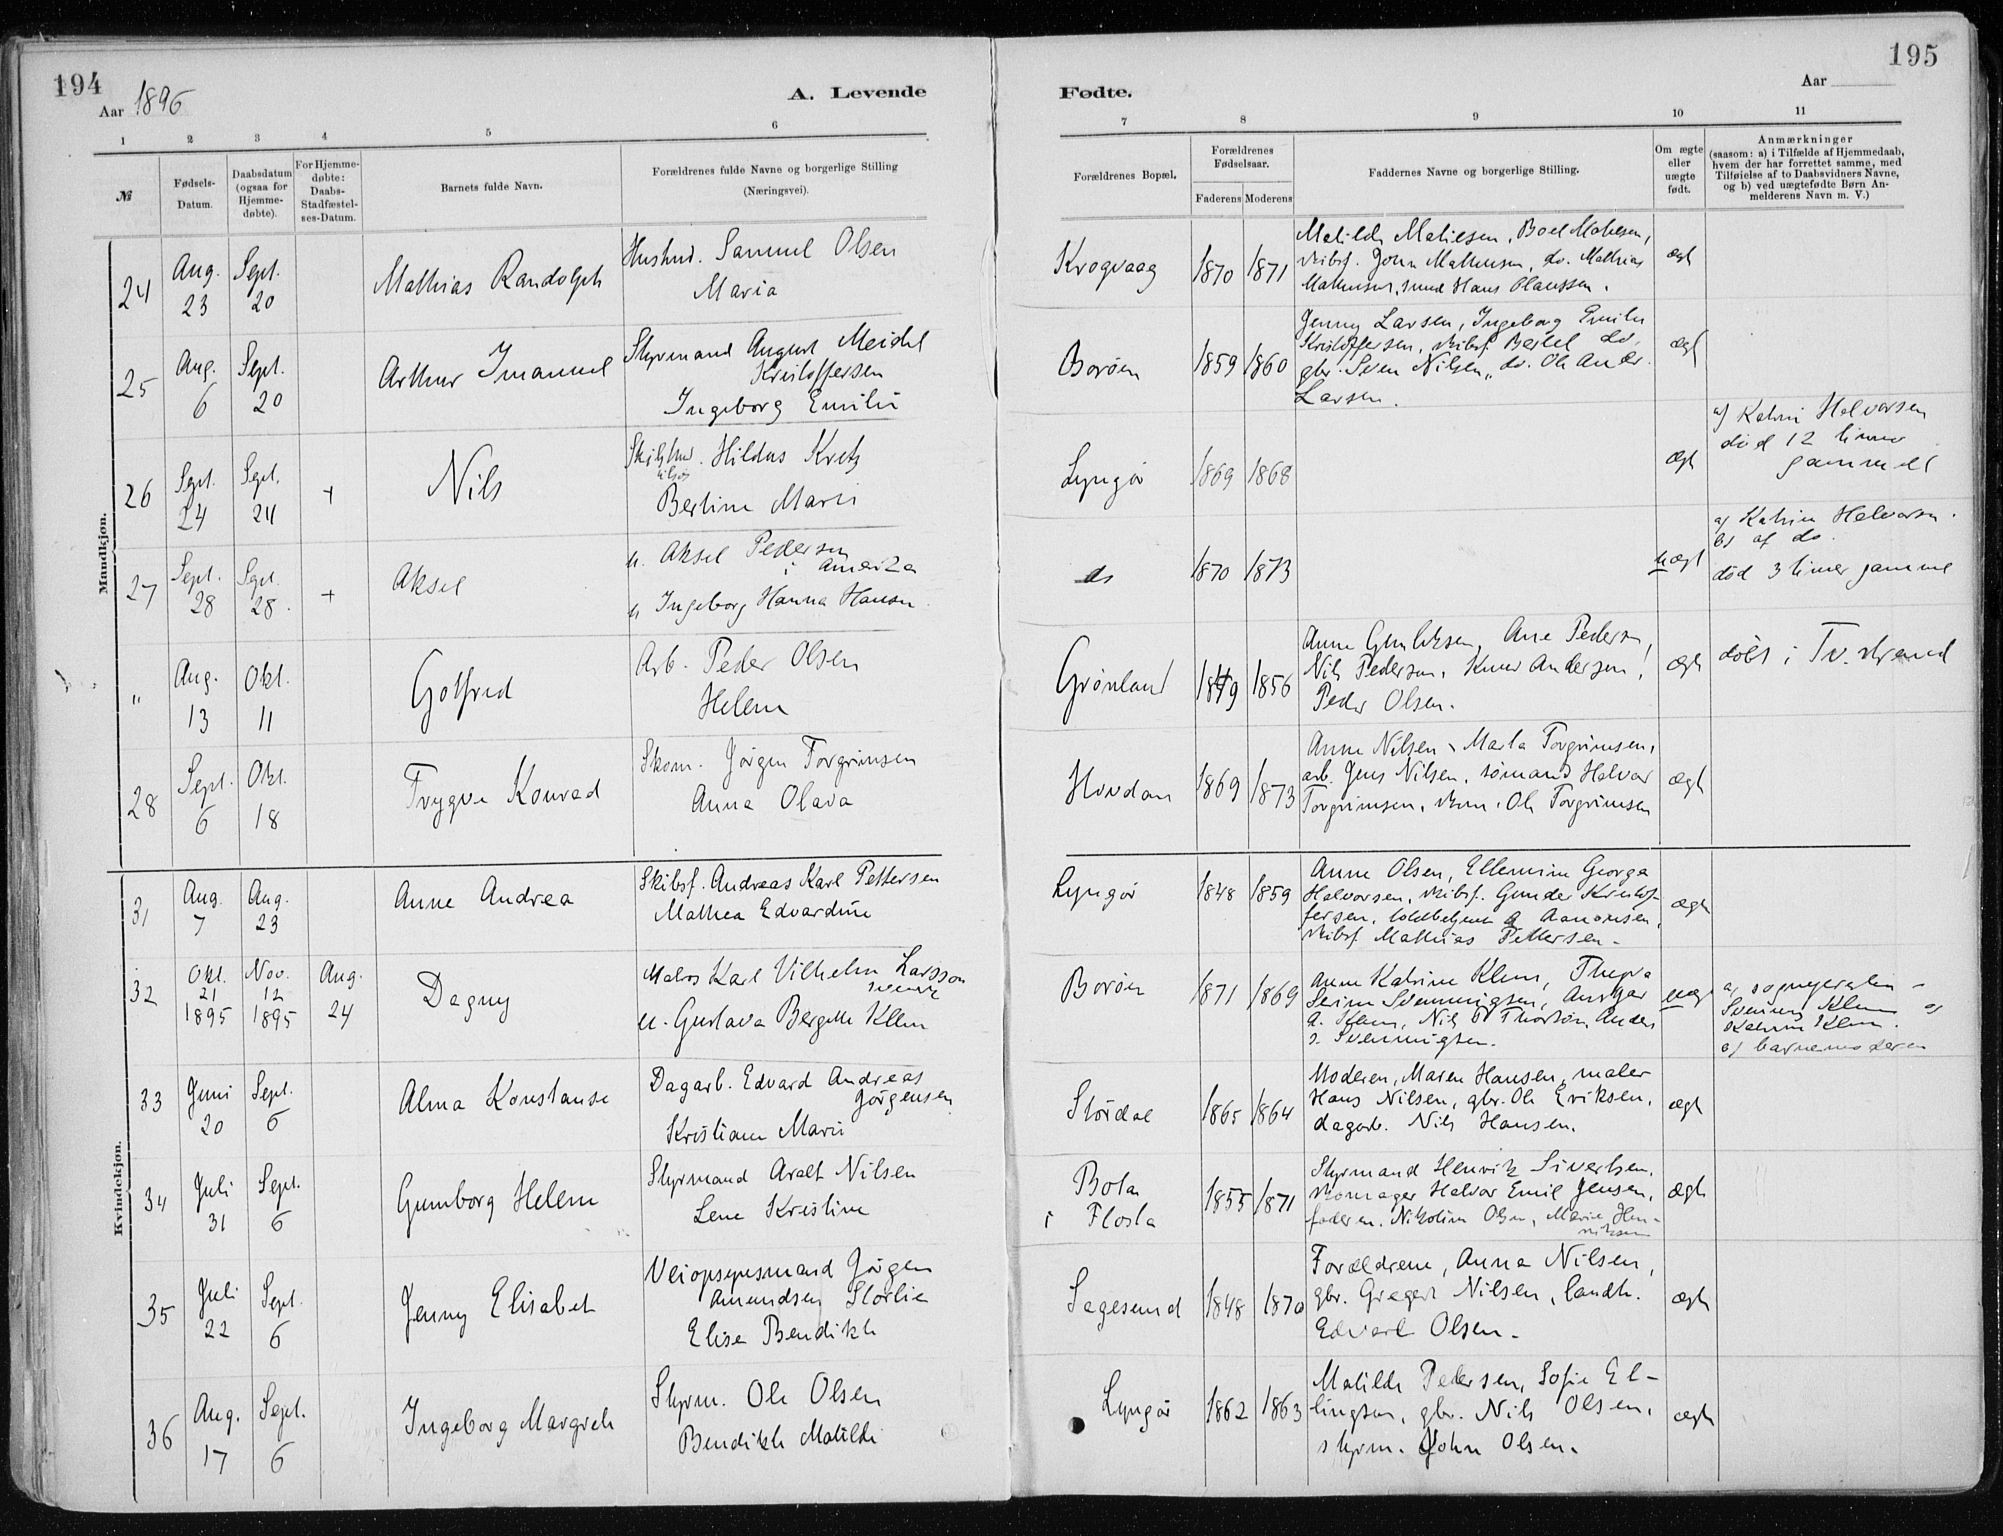 194
Aar 1896
A. Levende
1 2 3 4 5 6
№
Fødsels-Datum.
Daabsdatum (ogsaa for Hjemme-døbte).
For Hjemme-døbte: Daabs-Stadfæstel-ses-Datum.
Barnets fulde Navn.
Forældrenes fulde Navne og borgerlige Stilling
(Næringsvei).
Mandkjøn.
24 Aug. 23 Sept. 20 Mathias Randolph
Samuel Olsen
Maria
25 Aug. 6 Sept. 20 Arthur Imanuel
Styrmand August Meidel
Kristoffersen
Ingeborg Emilie
26 Sept. 24 Sept. 24 + Nils
Hildus Kretz
Bertine Marie
27 Sept. 28 Sept. 28. + Aksel
u. Aksel Pedersen
i Amerika
u Ingeborg Hanna Hansen
" Aug. 13 Okt. 11 Gotfred
Arb. Peder Olsen
Helene
28 Sept. 6 Okt. 18 Trygve Konrad
Skom. Jørgen Torgrimsen
Anna Olava
Kvindekjøn.
31 Aug. 7 Aug. 23 Anne Andrea
Skibsf. Andreas Karl Pettersen
Mathea Edvardine
32 Okt. 21 1895 Nov. 12 1895 Aug. 24 Dagny
Matros Karl Vilhelm Larsson
svensk
u. Gustava Bergitte Klem
33 Juni 20 Sept. 6 Alma Konstanse
Dagarb. Edvard Andreas
Jørgensen
Kristiane Marie
34 Juli 31 Sept. 6 Gunborg Helene
Styrmand Aralt Nilsen
Lene Kristine
35 Juli 22 Sept. 6 Jenny Elisabet
Veiopsynsmand Jørgen
Amundsen Storlie
Elise Bendikte
36 Aug. 17 Sept. 6 Ingeborg Margrete
Styrm. Ole Olsen
Bendikte Matilde
195
Fødte.
Aar
7 8 9 10 11
Forældrenes Bopæl.
Forældrenes Fødselsaar.
Faderens Moderens
Faddernes Navne og borgerlige Stilling.
Om ægte eller uægte født.
Anmærkninger
(saasom: a) i Tilfælde af Hjemmedaab,
hvem der har forrettet samme, med
Tilføielse af to Daabsvidners Navne,
og b) ved uægtefødte Børn An-
melderens Navn m. V.)
Krogvaag 1870 1871 ægt
Matilde Matiesen, Boel Matiesen,
skibsf. John Mathiesen, do. Mathias
Mathiesen, smed Hans Olaussen.
Borøen 1859 1860 ægt
Jenny Larsen, Ingeborg Emilie
Kristoffersen, skibsf. Bertel do,
gbr. Sven Nilsen, do. Ole Ander.
Larsen.
Lyngør 1869 1868 ægt
a) Katrine Halvorsen
død 12 timer
gammel
do 1870 1873 uægt
a) Katrine Halvorsen.
b) af do.
død 3 timer gammel
Grønland 1849 1856 ægt
Anne Gundersen, Ane Pedersen,
Nils Pedersen, Knud Andersen,
Peder Olsen.
døbt i Tv.strand
Hovdan 1869 1873 ægt
Anne Nilsen, Marta Torgrimsen,
arb. Jens Nilsen, sømand Halvor
Torgrimsen, skom. Ole Torgrimsen
Lyngør 1848 1859 ægt
Anne Olsen, Ellemine Georga
Halvorsen, skibsf. Gunder Kristof-
fersen, toldbetjent A Aanonsen,
skibsf Mathias Pettersen.
Borøen 1871 1869 uægt
Anne Katrine Klem,
Svenningsen, Ansgar
A. Klem, Nils Thorsøn, Anders
S. Svenningsen.
a)
Svenning Klem og
Katrine Klem.
b) barnemoderen
Stordal 1865 1864 ægt
Moderen, Maren Hansen, maler
Hans Nilsen, gbr. Ole Eriksen,
dagarb. Nils Hansen.
Bota
i Flosta 1855 1871 ægt
Styrmand Henrik Sivertsen,
skomager Halvor Emil Jensen,
faderen. Nikoline Olsen, Marie Hen-
riksen
Sagesund 1848 1870 ægt
Forældrene, Anna Nilsen,
gbr. Gregert Nilsen, landh.
Edvart Olsen.
Lyngør 1862 1863 ægt
Matilde Pedersen, Sofie El-
lingsen, gbr. Nils Olsen,
styrm. John Olsen.